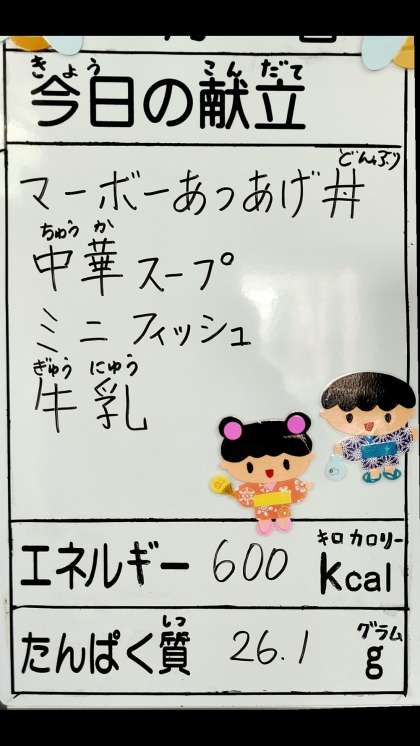 きょう こんだて
今日の献立
どんぶり
マーボーあつあげ井
ちゅう か
中華スープ
ミニフィッシュ
ぎゅう にゅう
牛乳
キロカロリー
エネルギー 600 Kcal
しつ グラム
たんぱく質 26.1 g